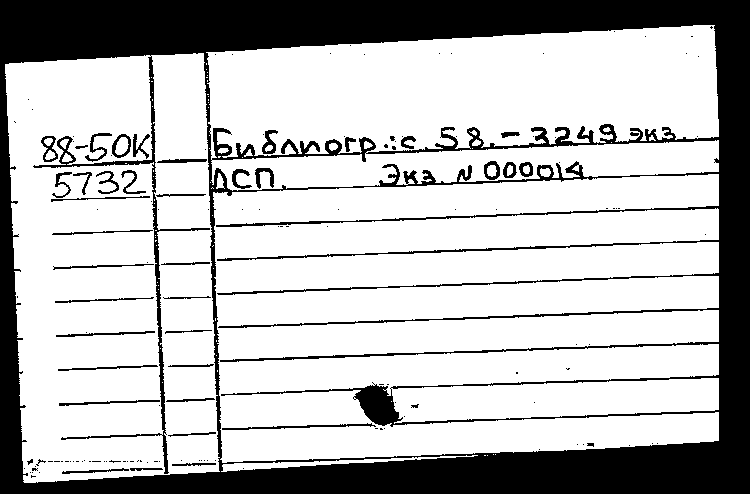 88-50К Библиогр.: с. 58. - 3249 экз.
5732 ДСП. Экз. N 000014.